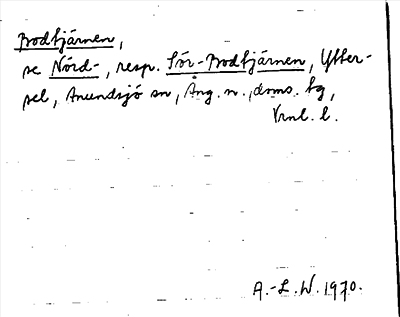 Bodtjärnen,
se Nörd-, resp. Sör-Bodtjärnen, Ytter-
sel, Anundsjö sn, Ång. n., dsms. tg,
Vrnl. l.
A.-L.W. 1970.